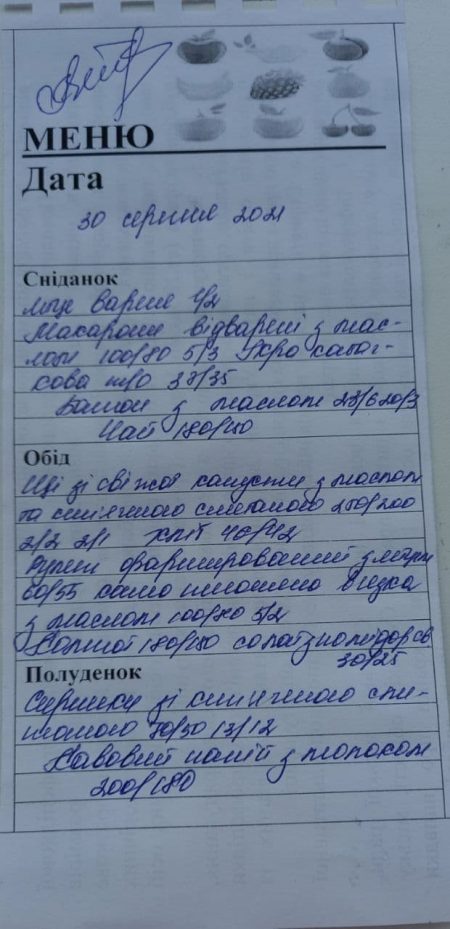 МЕНЮ
Дата
30 серпня 2021
Сніданок
яйце варене 1/2
Макарони відварені з мас-
лом 100/80 5/3 Ікра кабач-
кова 37/35
Батон з маслом 28/6 20/3
Чай 180/150
Обід
Щі зі свіжої капусти з маслом
та кип'яченою сметаною 250/200
2/2 2/1 хліб
Рулет фарширований з яйцем
60/55 каша пшенична в'язка
з маслом 100/80 5/2
Компот 180/150 салат з помідорів
30/25
Полуденок
Сирники зі кип'яченою сме-
таною 70/50 13/12
Кавовий напій з молоком
200/180